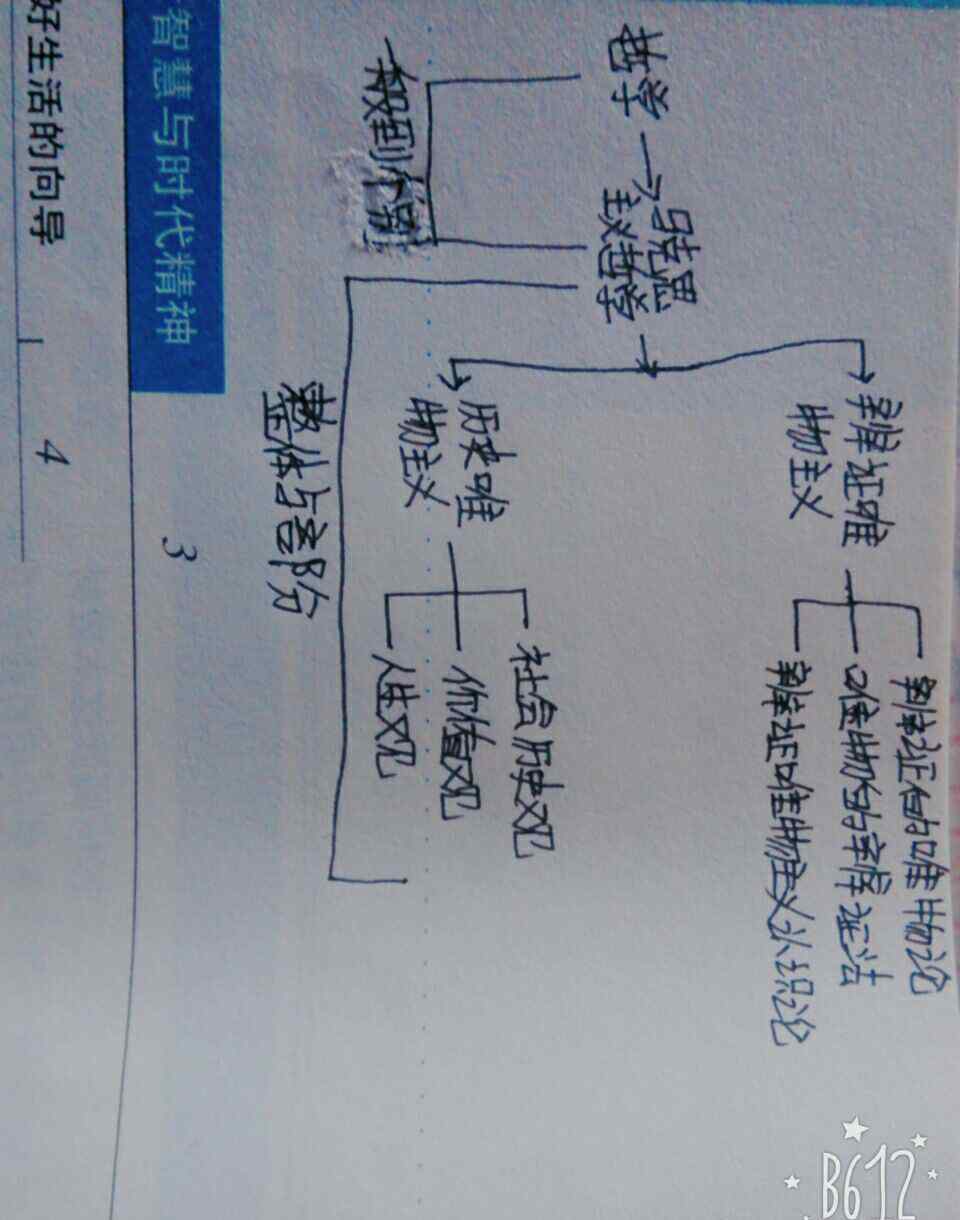 哲学
马克思
主义哲学
辩证唯
物主义
辩证的唯物论
唯物的辩证法
辩证唯物主义认识论
历史唯
物主义
社会历史观
价值观
人生观
一般到个别
整体与部份
3
智慧与时代精神
好生活的向导
4
B612